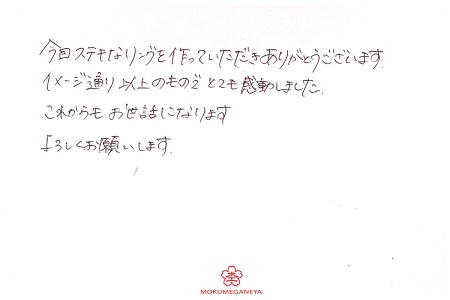 今回ステキなリングを作っていただきありがとうございます.
イメージ通り以上のものでとても感動しました.
これからもお世話になります
よろしくお願いします.
MOKUMEGANEYA